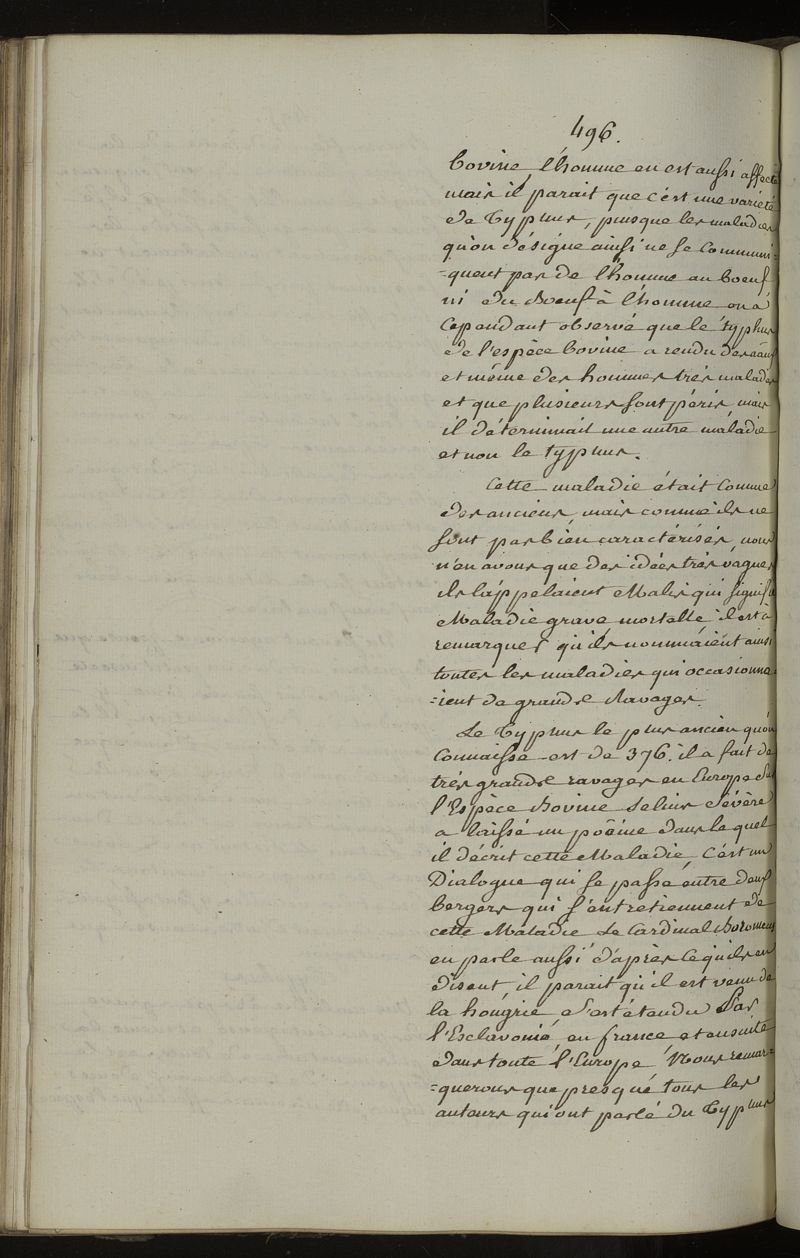 496.
bovine, l'homme en est aussi affecté
mais il parait que c'est une varieté
de Typhus, puisque les maladies
qu'on désigne ainsi ne se communi-
-quent pas de l'homme au boeuf
ni du Boeuf à l'homme on a
Cependant observé que le typhus
de l'espèce bovine a rendu des
et même des hommes très malades
et que plusieurs sont péris, mais
il déterminait une autre maladie
et non le typhus.
Cette maladie était Connue
des anciens, mais comme ils ne
sont pas bien caractérisés, nous
n'en avons que des idées très vagues
ils l'appelaient Malis qui signifie
Maladie grave mortelle, il est à
remarquer qu'ils nommaient ainsi
toutes les maladies qui occasionna
-ient de grands Ravages.
Le Typhus le plus ancien qu'on
Connaisse est de 376. il a fait de
très grands ravages en Europe Sur
l'Espèce Bovine Selius Sévère
a laissé un poëme dans le quel
il décrit cette Maladie, C'est un
Dialogue qui se passe entre deux
bergers qui s'entretiennent de
cette Maladie Le Cardinal
en parle aussi d'après ce qu'ils en
disent, il parait qu'il est venu de
la hongrie, S'est étendu Par
l'Esclavonie, en france, et ensuite
dans toute l'Europe. Nous remar-
-querons que presque tous les
auteurs qui ont parlé du Typhus